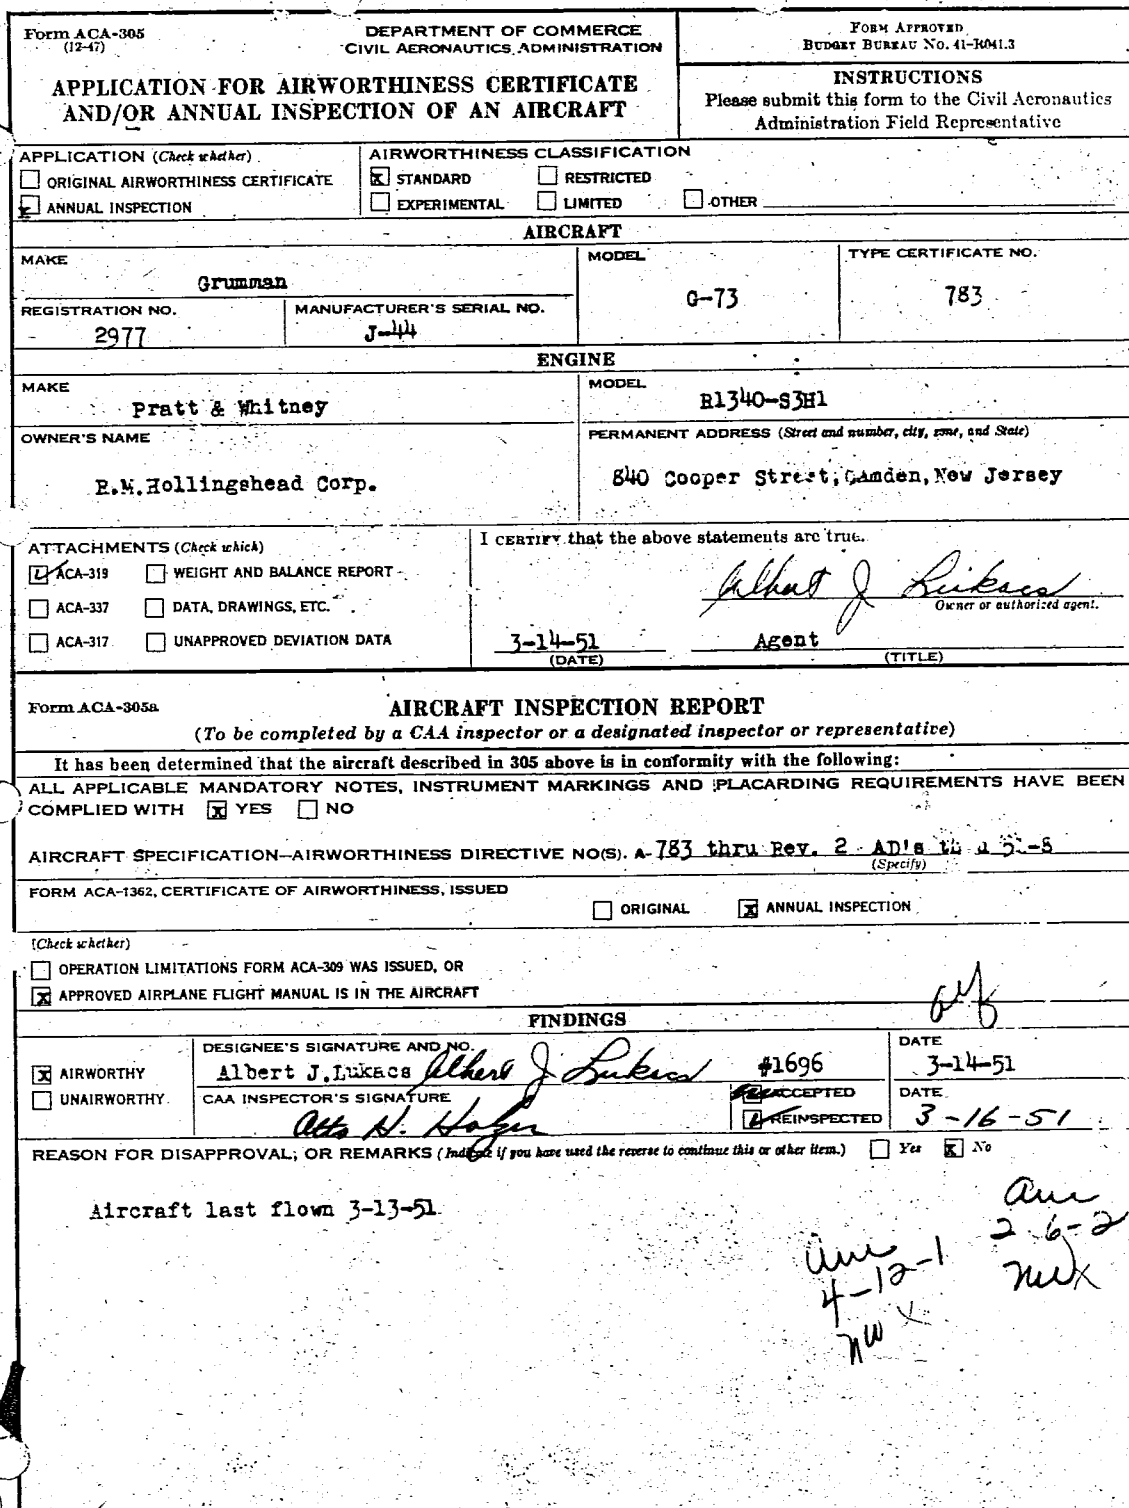 Form ACA-305
(12-47)
DEPARTMENT OF COMMERCE
CIVIL AERONAUTICS ADMINISTRATION
APPLICATION FOR AIRWORTHINESS CERTIFICATE
AND/OR ANNUAL INSPECTION OF AN AIRCRAFT
FORM APPROVED
BUDGET BUREAU NO. 41-R041.3
INSTRUCTIONS
Please submit this form to the Civil Aeronautics
Administration Field Representative
APPLICATION (Check whether)
ORIGINAL AIRWORTHINESS CERTIFICATE
x ANNUAL INSPECTION
AIRWORTHINESS CLASSIFICATION
x STANDARD RESTRICTED
EXPERIMENTAL LIMITED OTHER
AIRCRAFT
MAKE
Grumman
MODEL
G-73
TYPE CERTIFICATE NO.
783
REGISTRATION NO.
2977
MANUFACTURER'S SERIAL NO.
J-44
ENGINE
MAKE
Pratt & Whitney
MODEL
R1340-S3H1
OWNER'S NAME
R.M.Hollingshead Corp.
PERMANENT ADDRESS (Street and number, city, zone, and State)
840 Cooper Street, Camden, New Jersey
ATTACHMENTS (Check which)
ACA-319 WEIGHT AND BALANCE REPORT
ACA-337 DATA, DRAWINGS, ETC.
ACA-317 UNAPPROVED DEVIATION DATA
I CERTIFY that the above statements are true.
Albert J Lukacs
Owner or authorized agent.
3-14-51 Agent
(DATE) (TITLE)
Form ACA-305a
AIRCRAFT INSPECTION REPORT
(To be completed by a CAA inspector or a designated inspector or representative)
It has been determined that the aircraft described in 305 above is in conformity with the following:
ALL APPLICABLE MANDATORY NOTES, INSTRUMENT MARKINGS AND PLACARDING REQUIREMENTS HAVE BEEN
COMPLIED WITH x YES NO
AIRCRAFT SPECIFICATION—AIRWORTHINESS DIRECTIVE NO(S). A-783 thru Rev. 2 AD's
(Specify)
FORM ACA-1362, CERTIFICATE OF AIRWORTHINESS, ISSUED
ORIGINAL x ANNUAL INSPECTION
(Check whether)
OPERATION LIMITATIONS FORM ACA-309 WAS ISSUED, OR
x APPROVED AIRPLANE FLIGHT MANUAL IS IN THE AIRCRAFT
FINDINGS
x AIRWORTHY
UNAIRWORTHY
DESIGNEE'S SIGNATURE AND NO.
Albert J.Lukacs Albert J Lukacs #1696
DATE
3-14-51
CAA INSPECTOR'S SIGNATURE
ACCEPTED
REINSPECTED
DATE
3-16-51
REASON FOR DISAPPROVAL, OR REMARKS (Indicate if you have used the reverse to continue this or other item.) Yes x No
Aircraft last flown 3-13-51
4-12-1
2-6-2